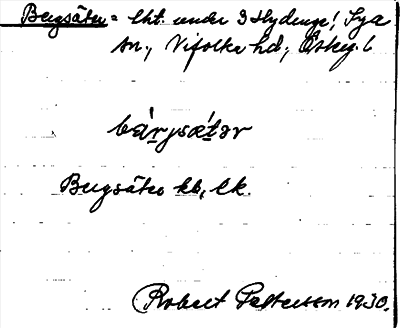 Bergsäter = lht. under 3 Hydinge, Sya
sn., Vifolka hd, Östeg. l
bárjsæ̀tər
Bergsäter kb, lk.
Robert Pettersson 1930.